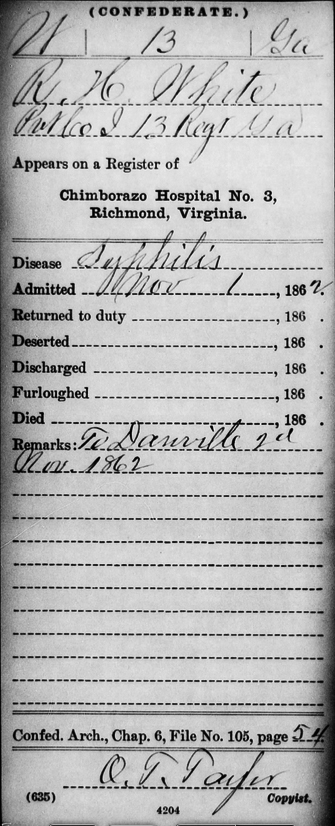 (CONFEDERATE.)
W | 13 | Ga
R. H. White
Pvt Co I 13 Regt Ga
Appears on a Register of
Chimborazo Hospital No. 3,
Richmond, Virginia.
Disease Syphilis
Admitted Nov 1, 1862.
Returned to duty, 186 .
Deserted, 186 .
Discharged, 186 .
Furloughed, 186 .
Died, 186 .
Remarks: To Danville 2d
Nov. 1862
Confed. Arch., Chap. 6, File No. 105, page 54
O. T.
(635) Copyist.
4204